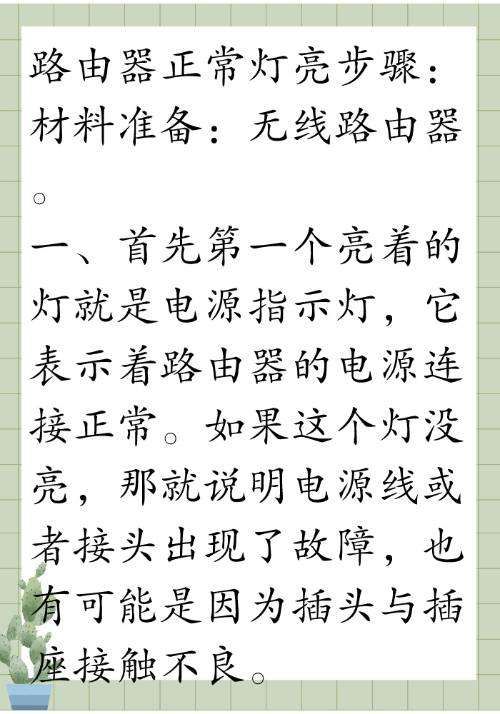 路由器正常灯亮步骤：
材料准备：无线路由器
。
一、首先第一个亮着的
灯就是电源指示灯，它
表示着路由器的电源连
接正常。如果这个灯没
亮，那就说明电源线或
者接头出现了故障，也
有可能是因为插头与插
座接触不良。